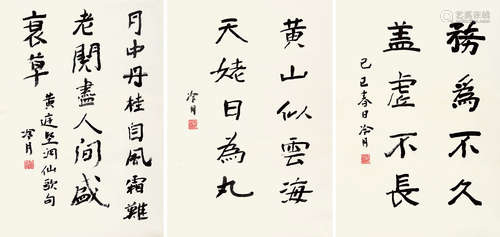 務爲不久
盖虚不長
己巳春日冷月
黄山似雲海
天姥日為丸
冷月
月中丹桂自風霜難
老閱盡人间盛
衰草
黄庭堅洞仙歌句
冷月